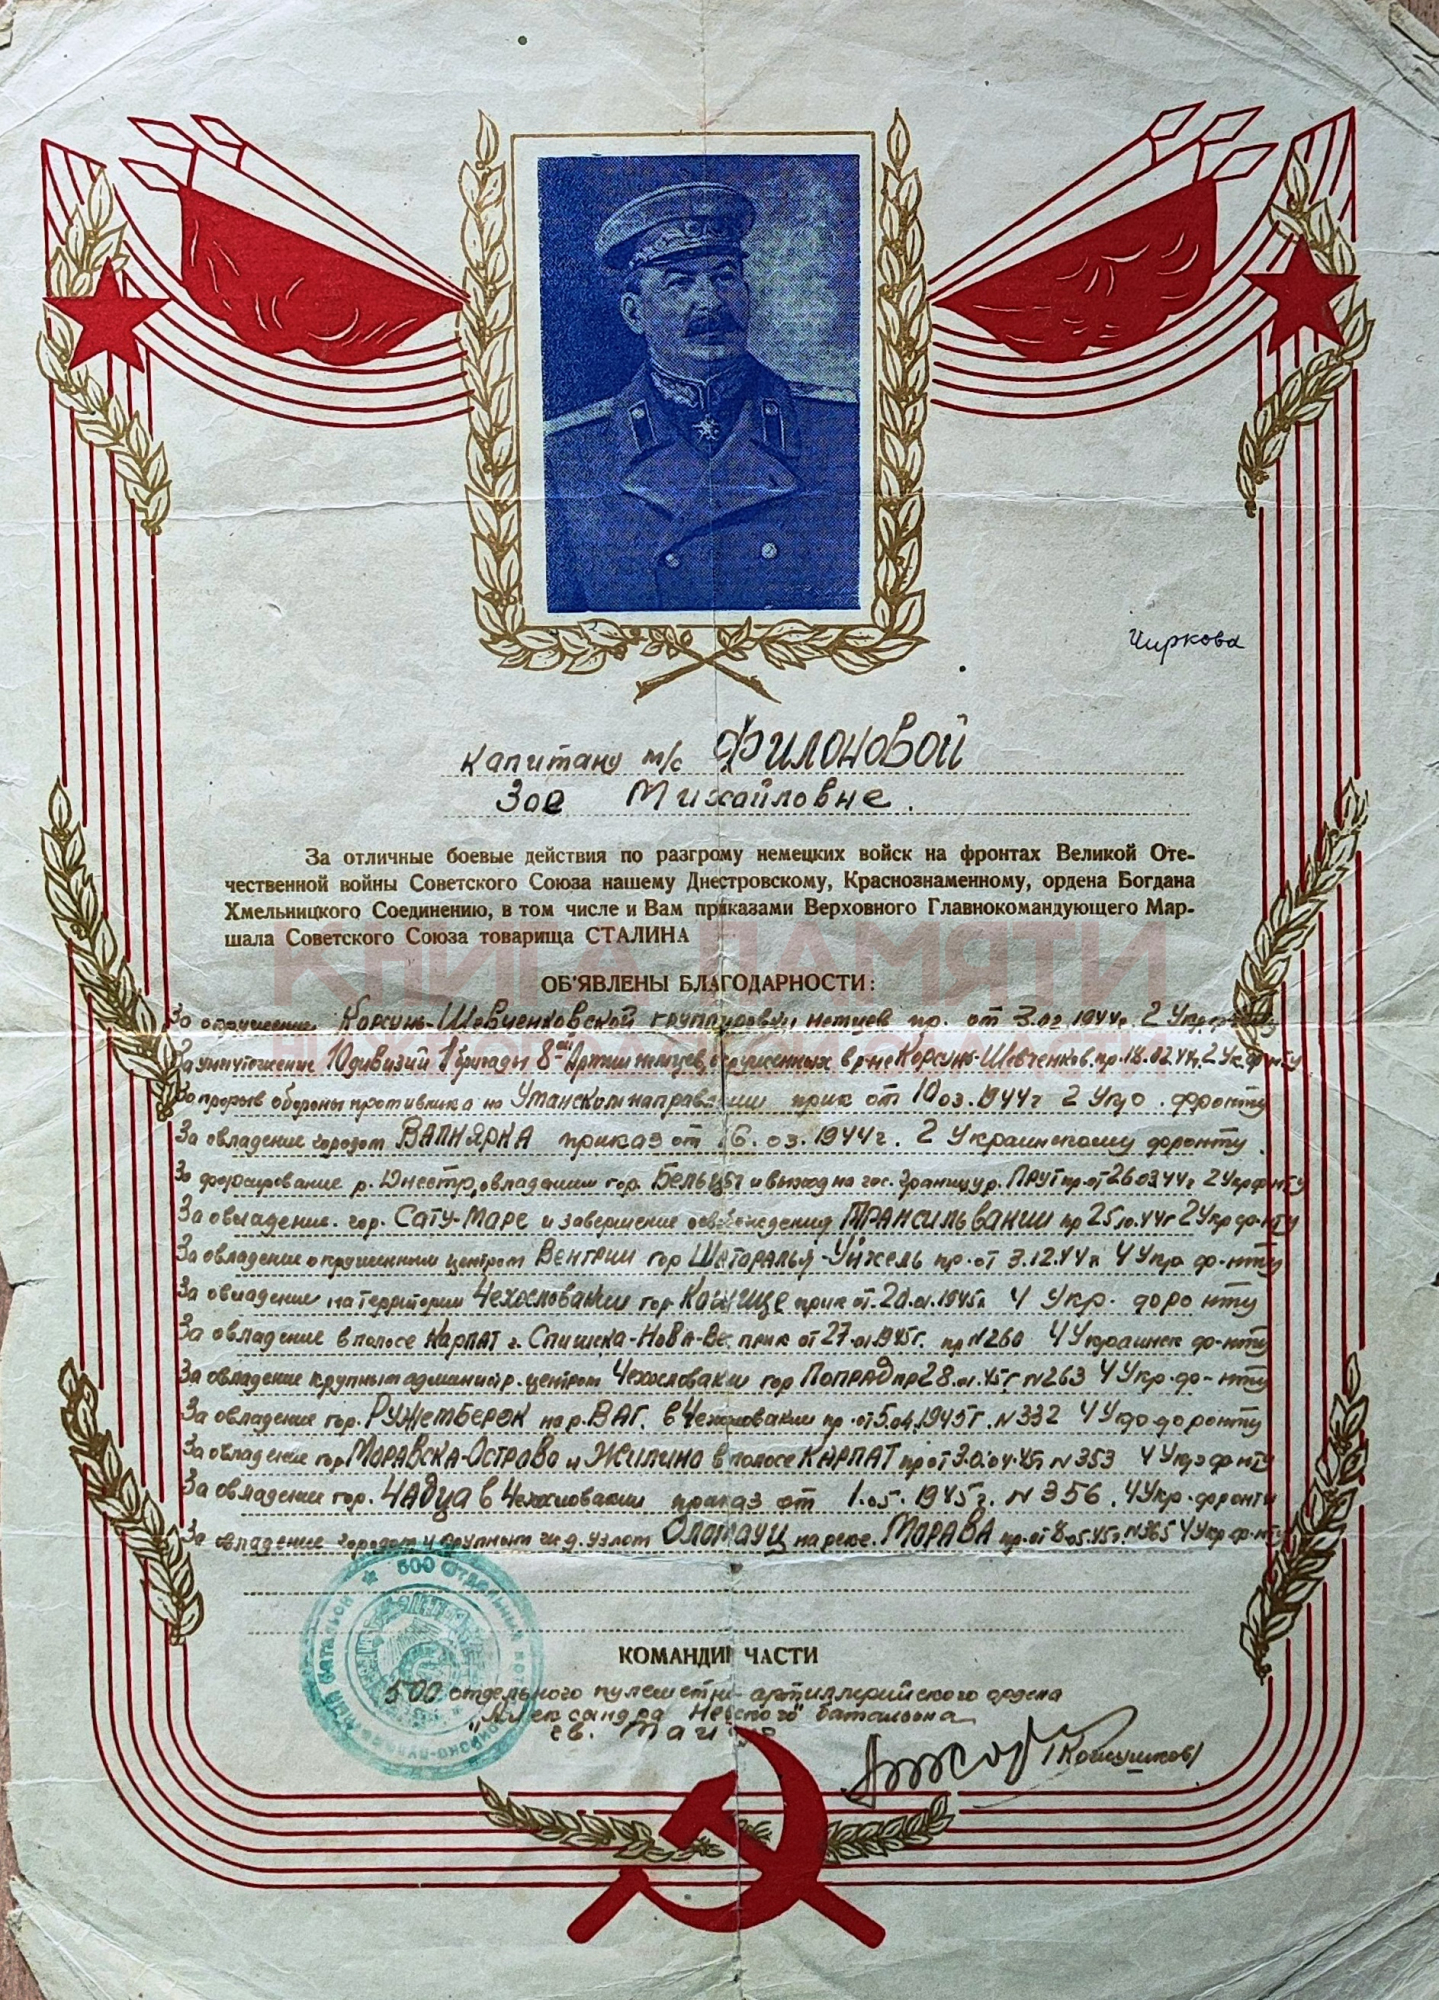 Чиркова
Капитану м/с Филоновой
Зое Михайловне.
За отличные боевые действия по разгрому немецких войск на фронтах Великой Оте-
чественной войны Советского Союза нашему Днестровскому, Краснознаменному, ордена Богдана
Хмельницкого Соединению, в том числе и Вам приказами Верховного Главнокомандующего Мар-
шала Советского Союза товарища СТАЛИНА
КНИГА ПАМЯТИ
НИЖЕГОРОДСКОЙ ОБЛАСТИ
ОБ'ЯВЛЕНЫ БЛАГОДАРНОСТИ:
За окружение Корсунь-Шевченковской группировки немцев пр. от 3.02.1944г. 2 Укр.
За уничтожение 10 дивизий 1 бригады 8-ой Армии немцев, окруженных в р-не Корсунь-Шевченков. пр. 18.02.44г. 2 Ук. ф-нту
За прорыв обороны противника на Уманском направлении прик от 10 03.1944г 2 Укр. фронту
За овладение городом ВАПНЯРКА приказ от 16.03.1944г. 2 Украинскому фронту.
За форсирование р. Днестр, овладении гор. Бельцы и выход на гос. границу р. ПРУТ пр. от 26 03 44г 2 Укр ф-нту
За овладение гор. САТУ-МАРЕ и завершение освобождения ТРАНСИЛЬВАНИИ пр 25.10.44г 2 Укр ф-нту
За овладение окруженным центром ВЕНГРИИ гор Шаторалья-Уйхель пр. от 3.12.44г 4 Укр ф-нту
За овладение на территории Чехословакии гор. прик от. 20.01.1945г 4 Укр. фронту
За овладение в полосе КАРПАТ г. Спишска-Нова-Вес прик от 27.01.1945г. пр N 260 4 Украинск ф-нту
За овладение крупным админист р. центром Чехословаки гор ПОПРАД пр 28.01.45г N 263 4 Укр. ф-нту
За овладение гор. РУЖЕМБЕРОК на р. ВАГ. в Чехословакии пр. от 5.04.1945г. N 332 4 Укр фронту
За овладение гор. МОРАВСКА-ОСТРАВА и ЖИЛИНА в полосе КАРПАТ пр от 30.04.45г N 353 4 Укр ф-нту
За овладение гор. ЧАДЦА в Чехословакии приказ от 1.05.1945г. N 356. 4 Укр. фронту
За овладение городом и крупным ж.д. узлом ОЛОМАУЦ на реке МОРАВА пр. от 8.05.45г. N 365 4 Укр ф-нту
500 Отдельный
батальон
КОМАНДИР ЧАСТИ
500 отдельного пулеметно-артиллерийского ордена
"Александра Невского" батальона
гв. Майор
/Кожушков/